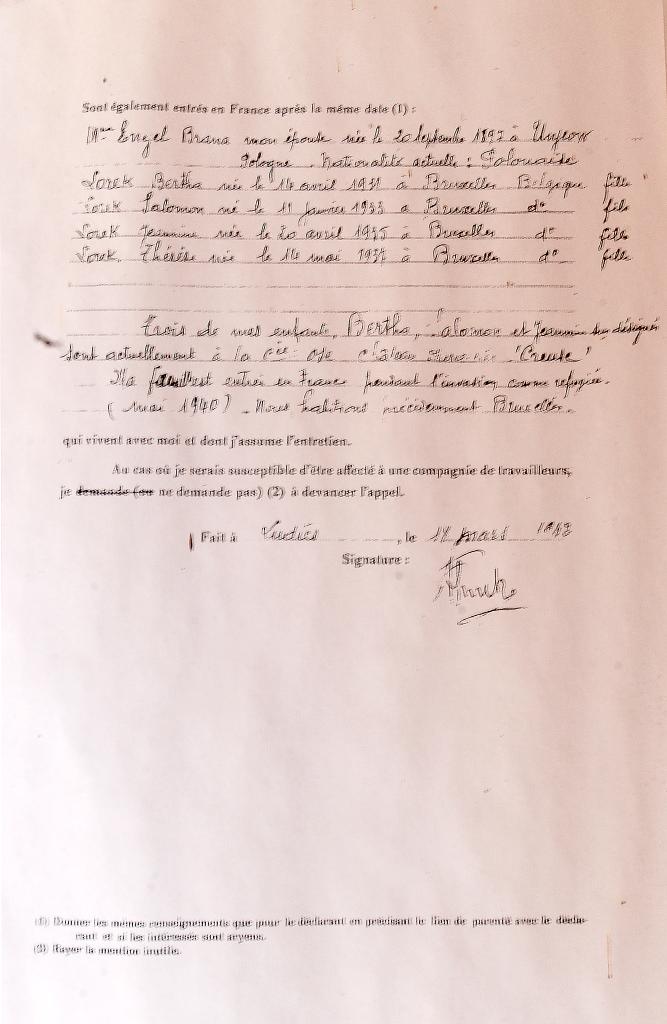 Sont également entrés en France après la même date (1) :
Mme Engel Brana mon épouse née le 20 Septembre 1897 à
Pologne Nationalité actuelle : Polonaise
Sorek Bertha née le 14 avril 1931 à Bruxelles Belgique fille
Sorek Salomon né le 11 janvier 1933 à Bruxelles do fils
Sorek Jeannine née le 20 avril 1935 à Bruxelles do fille
Sorek Thérèse née le 14 mai 1937 à Bruxelles do fille
Trois de mes enfants, Bertha, Salomon et Jeannine désignés
sont actuellement à la "Creuse"
Ma entrée en France pendant l'invasion comme refugiée.
(mai 1940) . Nous habitions précédemment Bruxelles.
qui vivent avec moi et dont j'assume l'entretien.
Au cas où je serais susceptible d'être affecté à une compagnie de travailleurs,
je demande (ou ne demande pas) (2) à devancer l'appel.
Fait à , le mars
Signature :
(1) Donner les mêmes renseignements que pour le déclarant en précisant le lien de parenté avec le décla-
rant et si les intéressés sont aryens.
(2) Rayer la mention inutile.